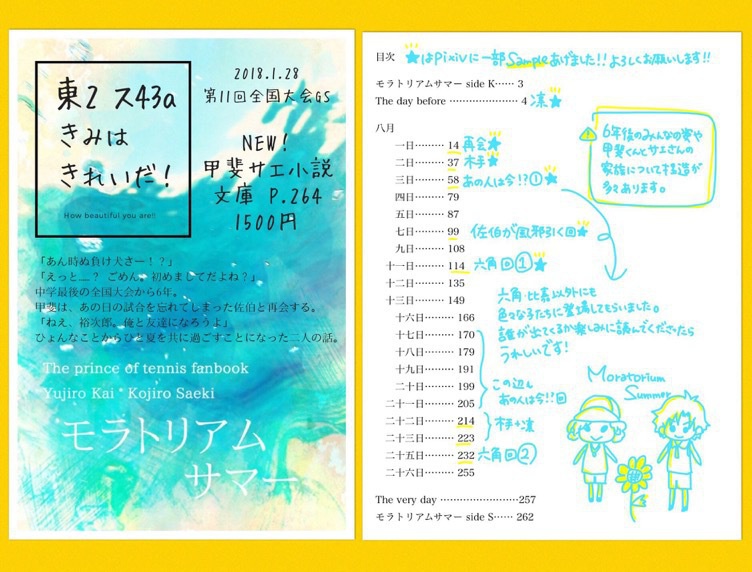 東2 ス43a
きみは
きれいだ！
How beautiful you are!!
2018.1.28
第11回全国大会GS
NEW!
甲斐サエ小説
文庫 P.264
1500円
「あん時ぬ負け犬さー！？」
「えっと―？ ごめん。初めましてだよね？」
中学最後の全国大会から6年。
甲斐は、あの日の試合を忘れてしまった佐伯と再会する。
「ねえ、裕次郎。俺と友達になろうよ」
ひょんなことからひと夏を共に過ごすことになった二人の話。
The prince of tennis fanbook
Yujiro Kai * Kojiro Saeki
モラトリアム
サマー
目次 ★はpixivに一部Sampleあげました!! よろしくお願いします!!
モラトリアムサマー side K…… 3
The day before ………………… 4 凛★
八月
一日……… 14 再会★
二日……… 37 木手★
三日……… 58 あの人は今!? ①★
四日……… 79
五日……… 87
七日……… 99 佐伯が風邪引く回★
九日……… 108
十一日……… 114 六角回①★
十二日……… 135
十三日……… 149
十六日……… 166
十七日……… 170
十八日……… 179
十九日……… 191
二十日……… 199
二十一日……… 205
この辺も
あの人は今!!回
二十二日……… 214
二十三日……… 223
木手+凛
二十五日……… 232 六角回②
二十六日……… 255
The very day ……………………257
モラトリアムサマー side S…… 262
6年後のみんなの姿や
甲斐くんとサエさんの
家族について捏造が
多々あります。
六角・比嘉以外にも
色々な子たちに登場してもらいました。
誰が出てくるか楽しみに読んでくださったら
うれしいです！
Moratorium
Summer